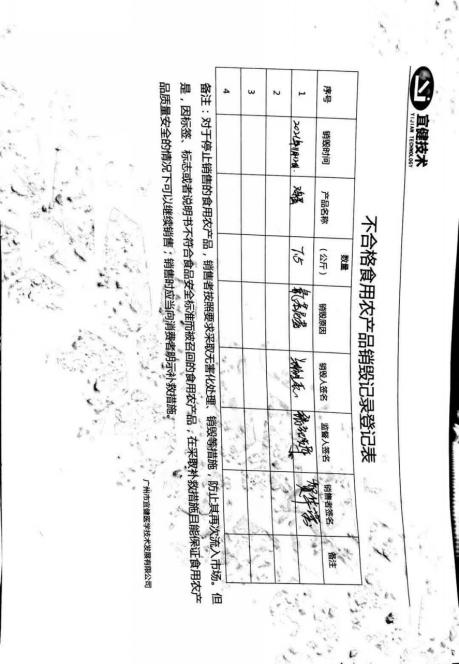 宜健技术
YIJIAN TECHNOLOGY
不合格食用农产品销毁记录登记表
序号 销毁时间 产品名称 数量（公斤） 销毁原因 销毁人签名 监督人签名 销售者签名 备注
1 鸡蛋 7.5
2
3
4
备注：对于停止销售的食用农产品，销售者按照要求采取无害化处理、销毁等措施，防止其再次流入市场。但
是，因标签、标志或者说明书不符合食品安全标准而被召回的食用农产品，在采取补救措施且能保证食用农产
品质量安全的情况下可以继续销售；销售时应当向消费者明示补救措施。
广州市宜健医学技术发展有限公司